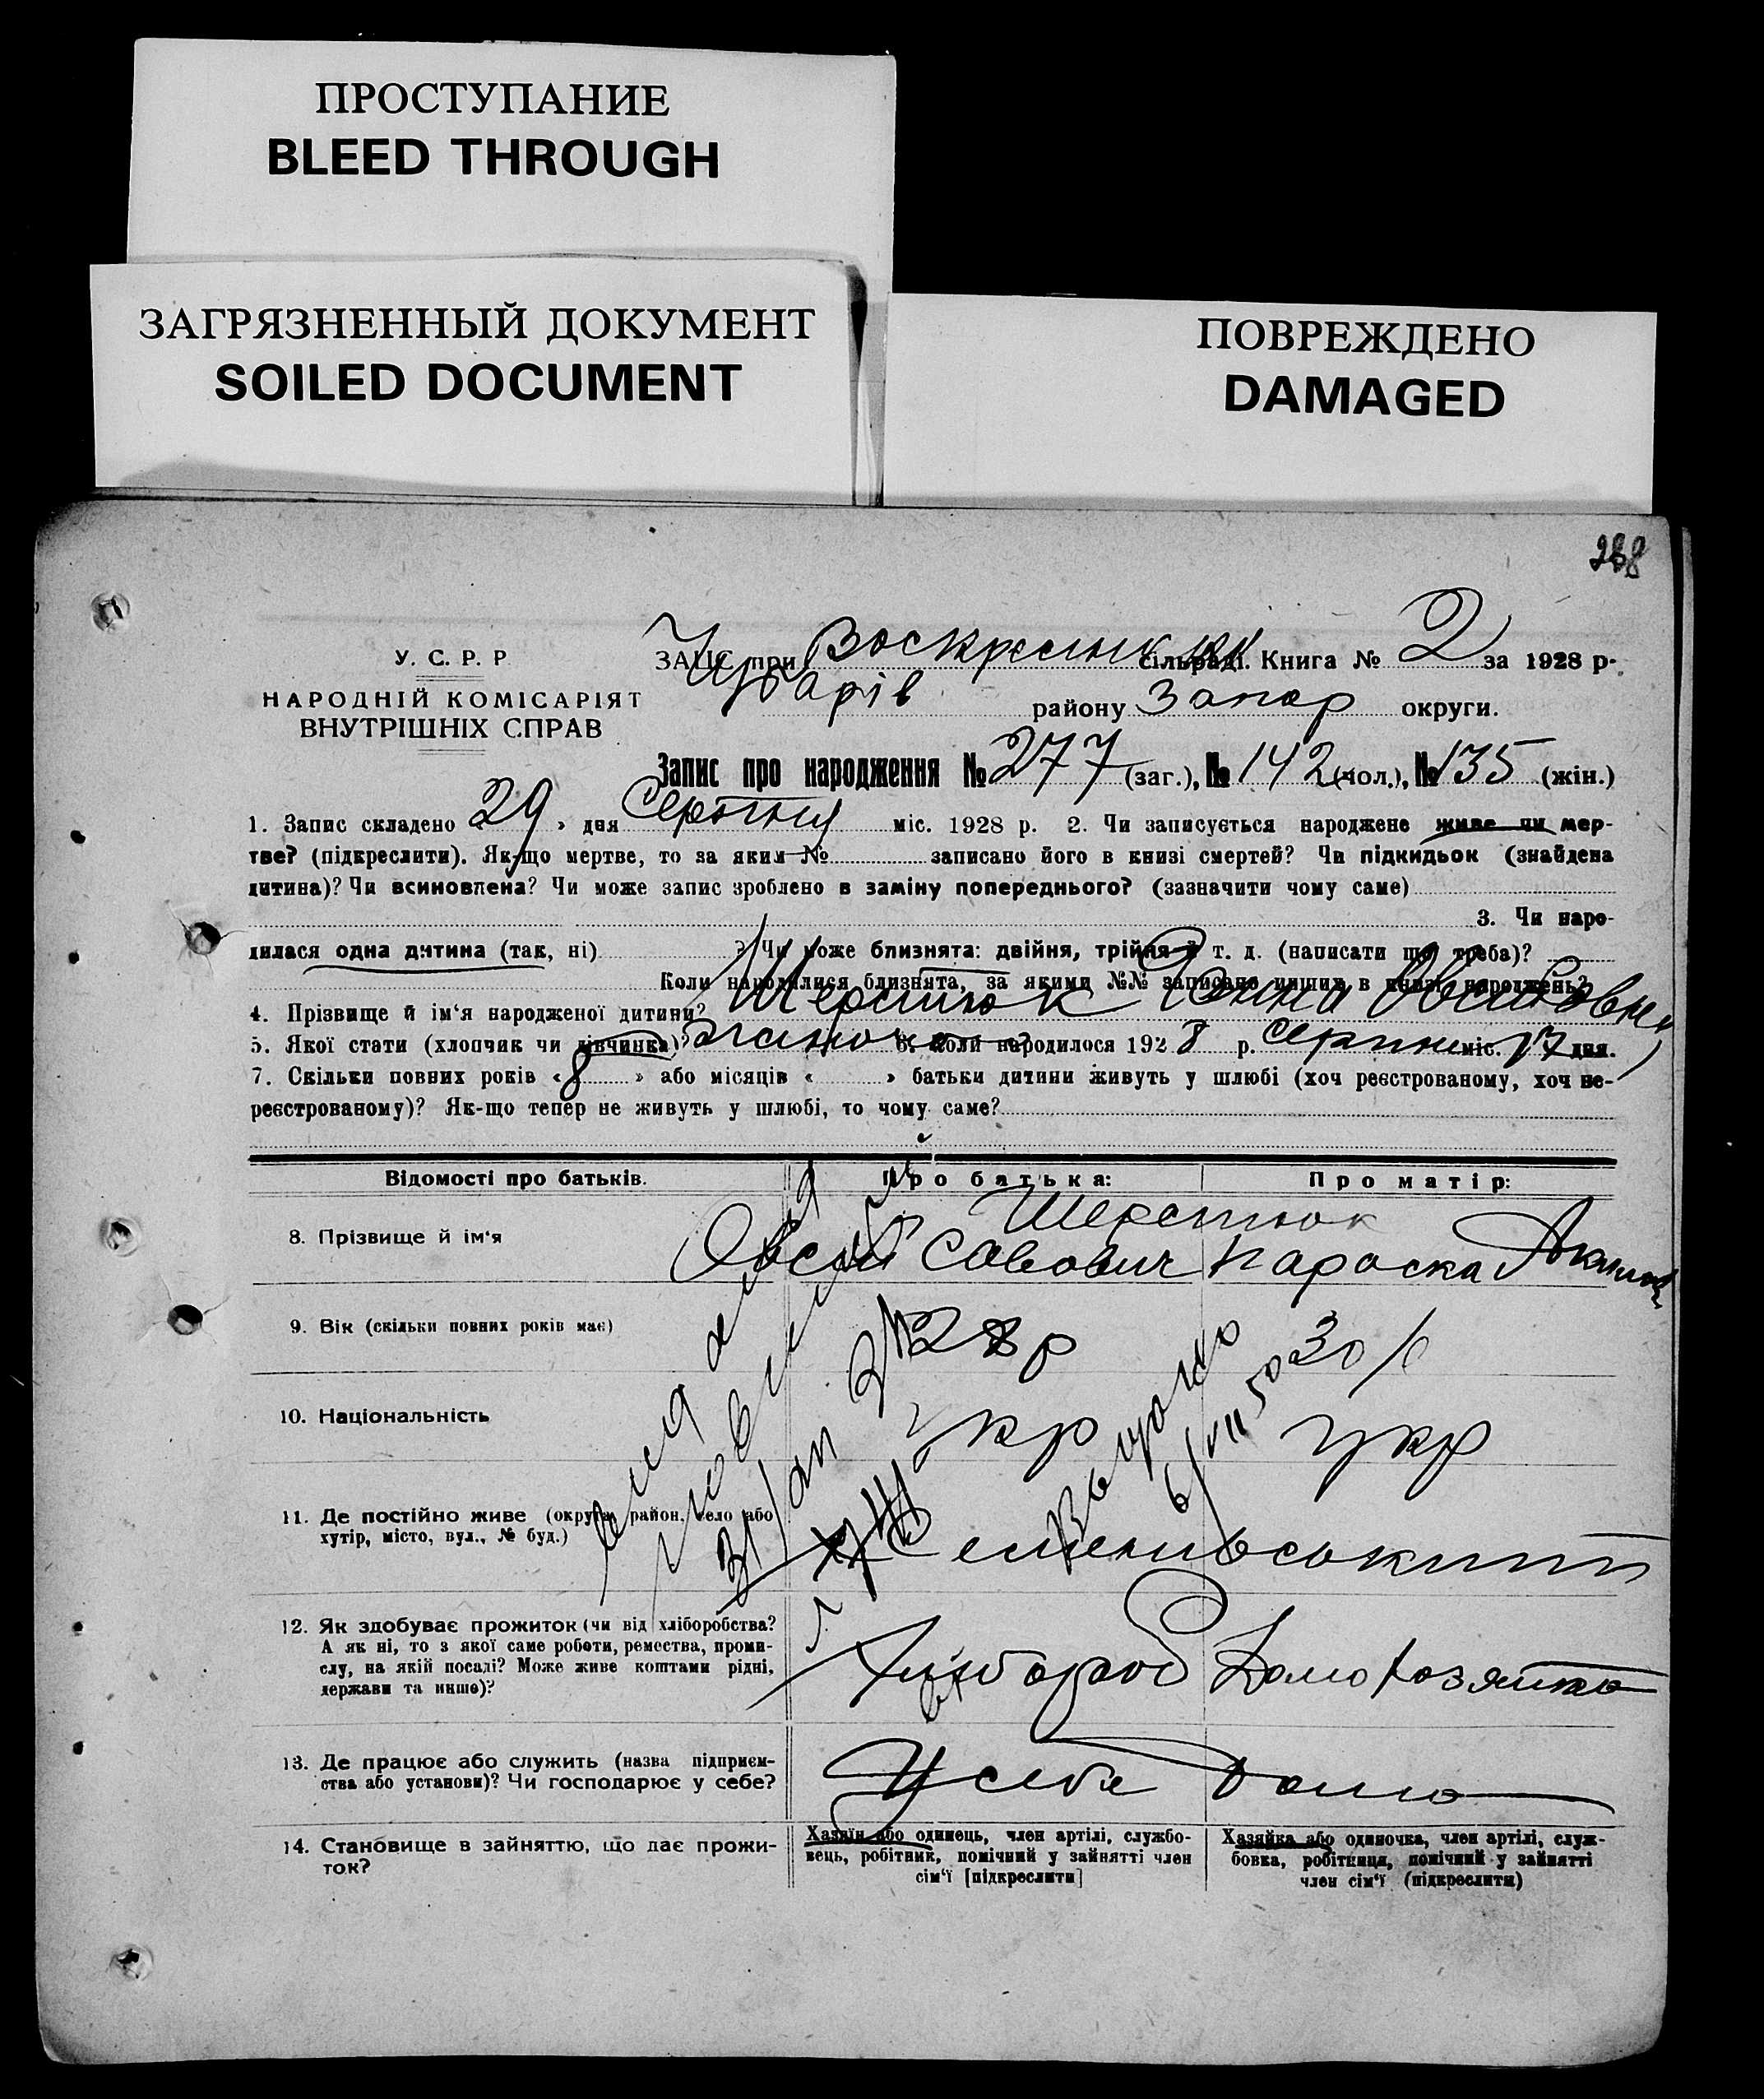 ПРОСТУПАНИЕ
BLEED THROUGH
ЗАГРЯЗНЕННЫЙ ДОКУМЕНТ
SOILED DOCUMENT
ПОВРЕЖДЕНО
DAMAGED
У. С. Р. Р
НАРОДНІЙ КОМІСАРІЯТ
ВНУТРІШНІХ СПРАВ
ЗАПИС при сільраді. Книга № 2 за 1928 р.
району Запор округи.
Запис про народження № 277 (заг.), № 142 (чол.), № 135 (жін.)
1. Запис складено « 29 » дня Серпня міс. 1928 р. 2. Чи записується народжене живе чи мер-
тве? (підкреслити). Як-що мертве, то за яким № записано його в книзі смертей? Чи підкидьок (знайдена
дитина)? Чи всиновлена? Чи може запис зроблено в заміну попереднього? (зазначити чому саме)
3. Чи наро-
дилася одна дитина (так, ні) ? Чи може близнята: двійня, трійня й т. д. (написати що треба)?
Коли народилися близнята, за якими №№ записано инших в книзі народжень?
4. Прізвище й ім'я народженої дитини? Шерстюк Ганна
5. Якої стати (хлопчик чи дівчинка)? 6. Коли народилося 192 8 р. Серпня міс. 17 дня.
7. Скільки повних років « 8 » або місяців « » батьки дитини живуть у шлюбі (хоч реєстрованому, хоч не-
реєстрованому)? Як-що тепер не живуть у шлюбі, то чому саме?
Відомості про батьків. Про батька: Про матір:
Шерстюк
8. Прізвище й ім'я Овсій Савович Параска
9. Вік (скільки повних років має) 28 р 30 р
10. Національність укр укр
11. Де постійно живе (округа, район, село або
хутір, місто, вул., № буд.)
12. Як здобуває прожиток (чи від хліборобства?
А як ні, то з якої саме роботи, ремества, проми-
слу, на якій посаді? Може живе коштами рідні,
держави та инше)?
Хлібороб Домохозяйка
13. Де працює або служить (назва підприєм-
ства або установи)? Чи господарює у себе?
У себе Дома
14. Становище в зайняттю, що дає прожи-
ток?
Хазяїн або одинець, член артілі, службо-
вець, робітник, помічний у зайнятті член
сім'ї [підкреслити]
Хазяйка або одиночка, член артілі, служ-
бовка, робітниця, помічний у зайнятті
член сім'ї (підкреслити)